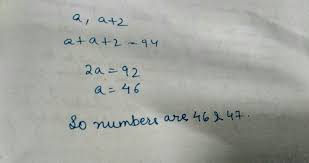 a, a+2
a+a+2 = 94
2a = 92
a = 46
So numbers are 46 & 47.